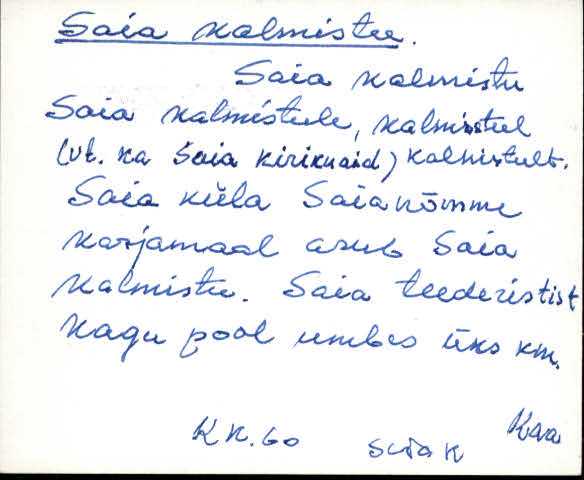 Saia kalmistu.
Saia kalmistu
Saia kalmistule, kalmistul
(vt. ka Saia kirikuaid) kalmistult.
Saia küla Saianõmme
karjamaal asub Saia
kalmistu. Saia teederistist
kagu pool umbes üks km.
KK. 60
Kaa